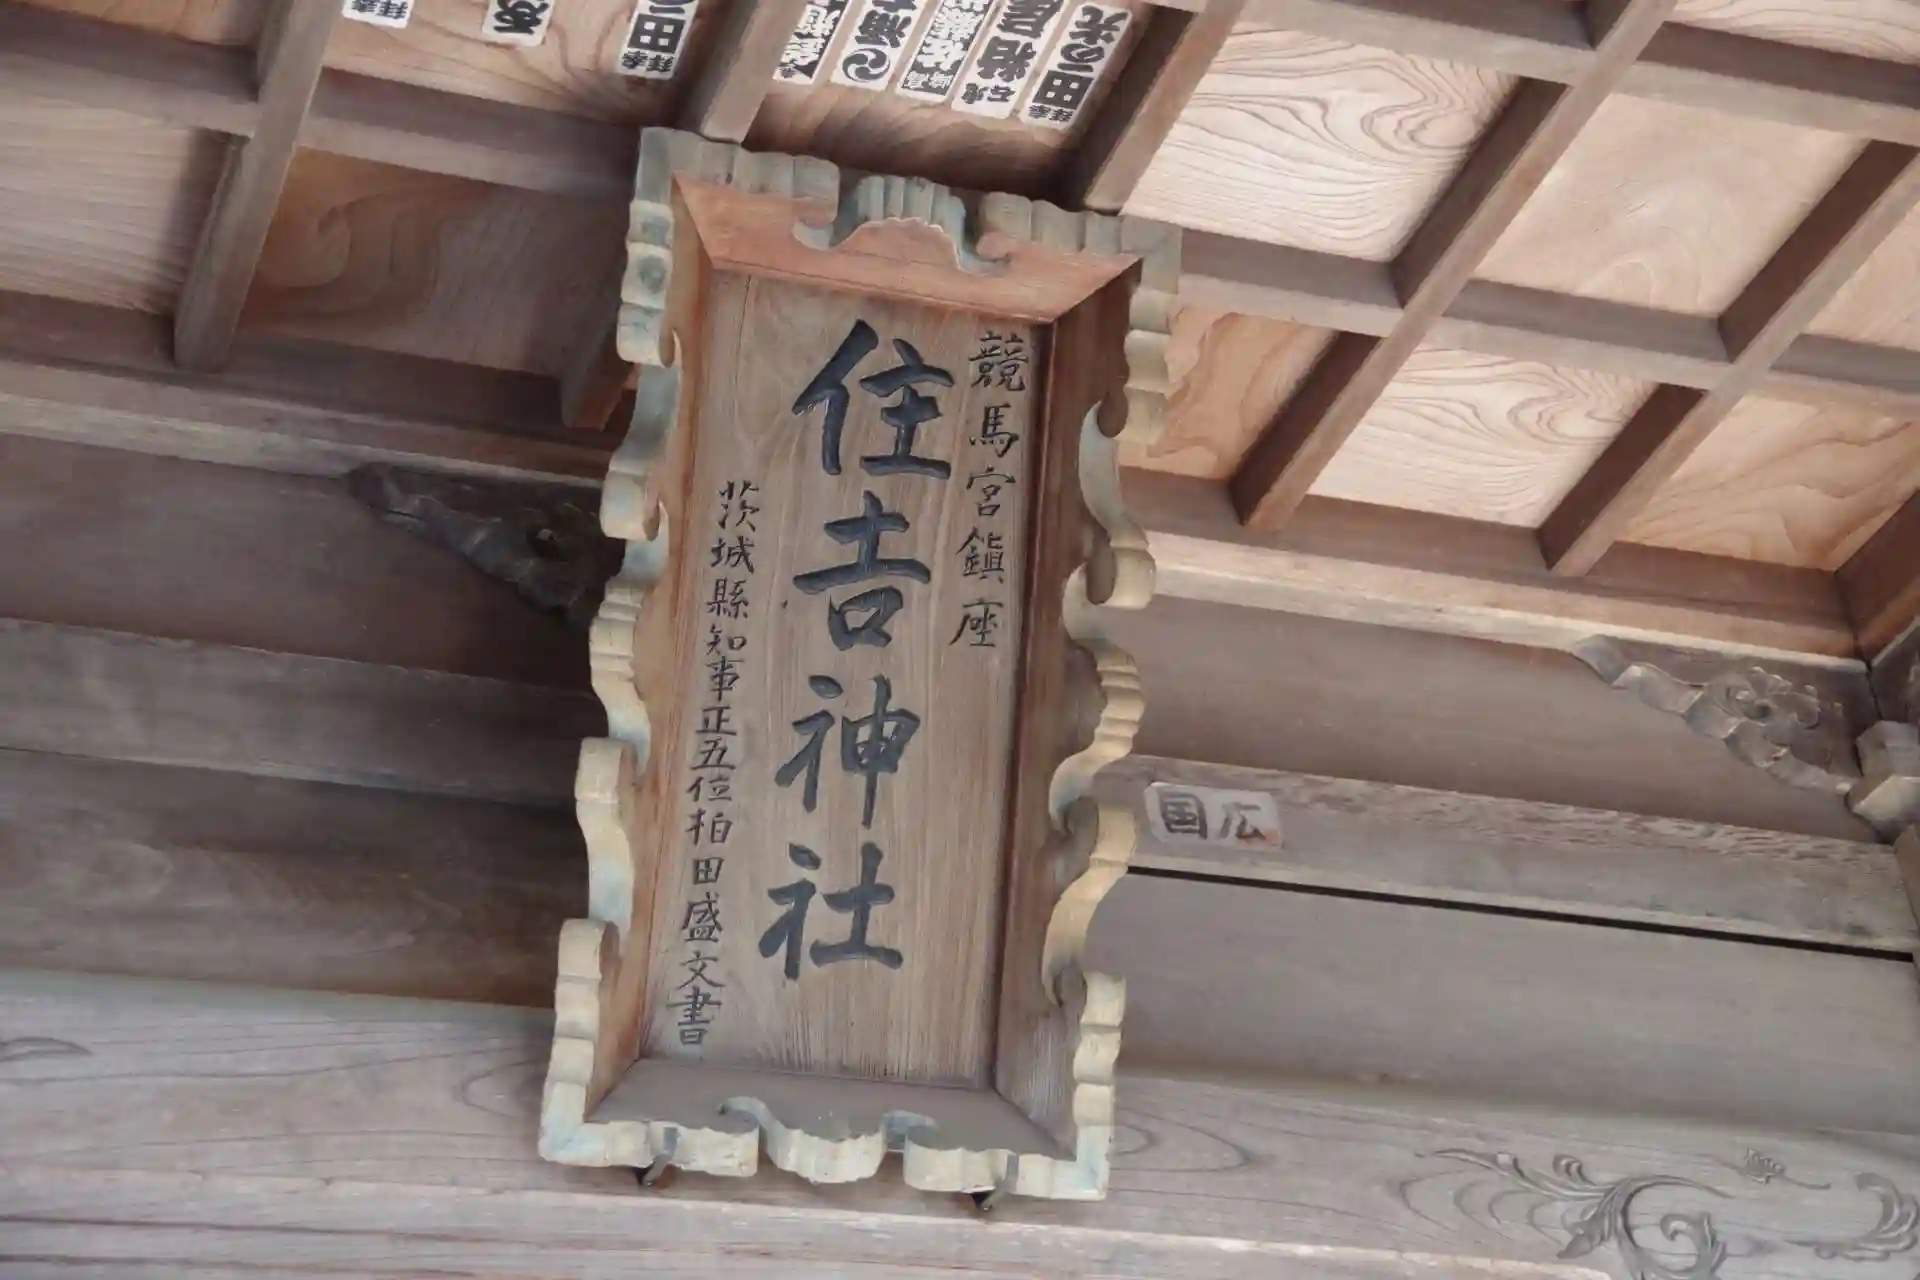 競馬宮鎮座
住吉神社
茨城縣知事正五位柏田盛文書
国広
田の光
拝奉